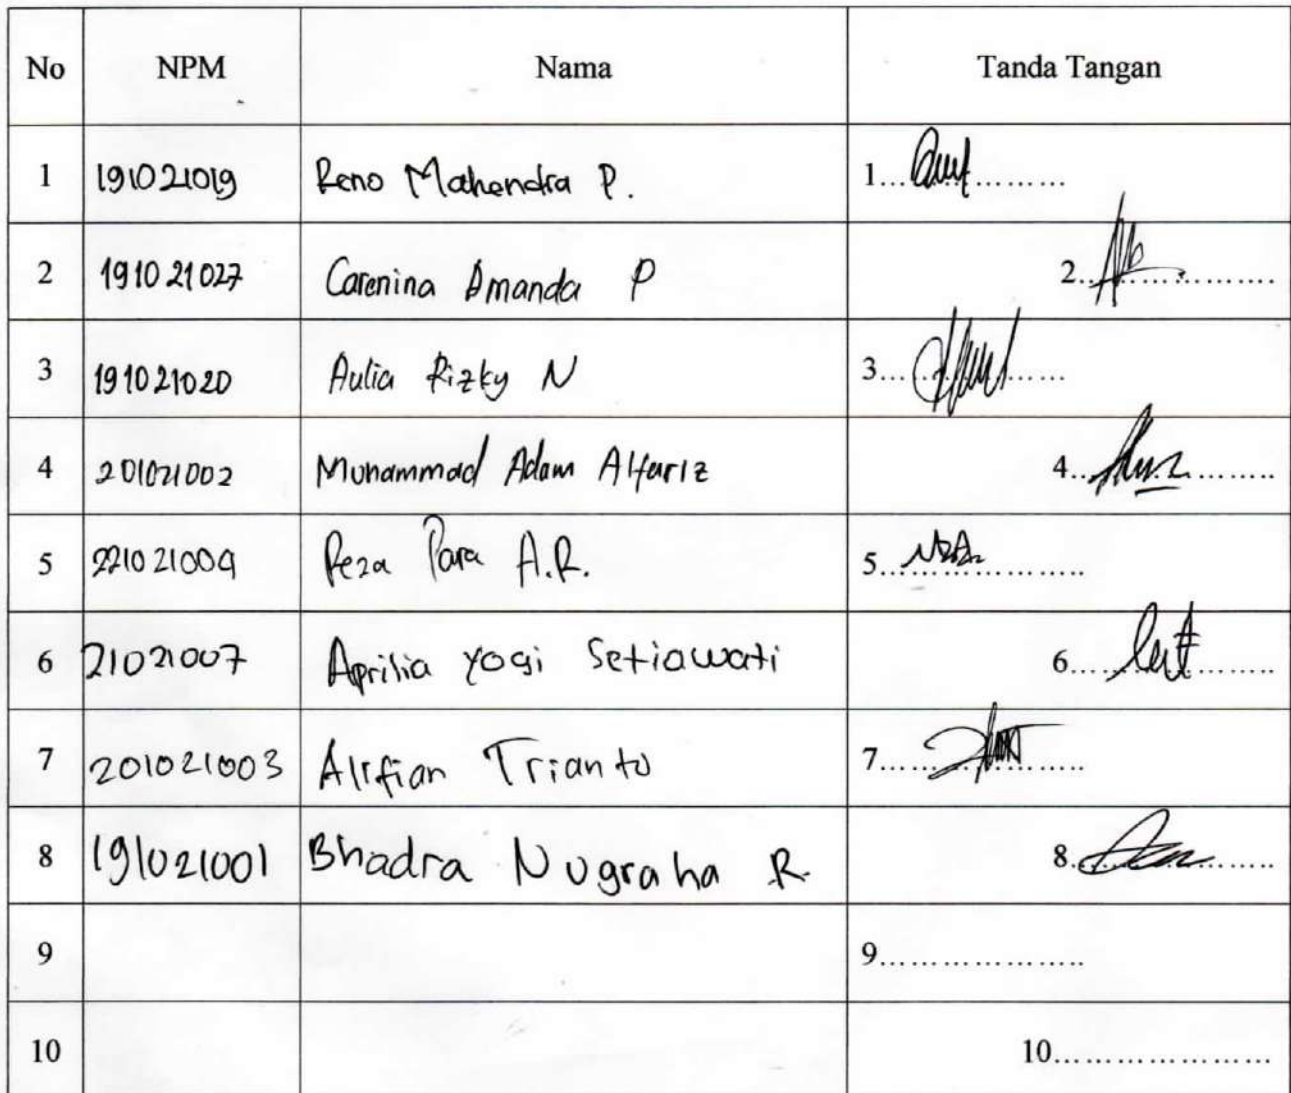 No NPM Nama Tanda Tangan
1 191021019 Reno Mahendra P. 1...
2 191021027 Carenina Amanda P 2...
3 191021020 Aulia Rizky N 3...
4 201021002 Muhammad Adam Alfariz 4...
5 221021009 Reza Para A.R. 5...
6 21021007 Aprilia Yogi Setiawati 6...
7 201021003 Alifian Trianto 7...
8 191021001 Bhadra Nugraha R. 8...
9 9...
10 10...